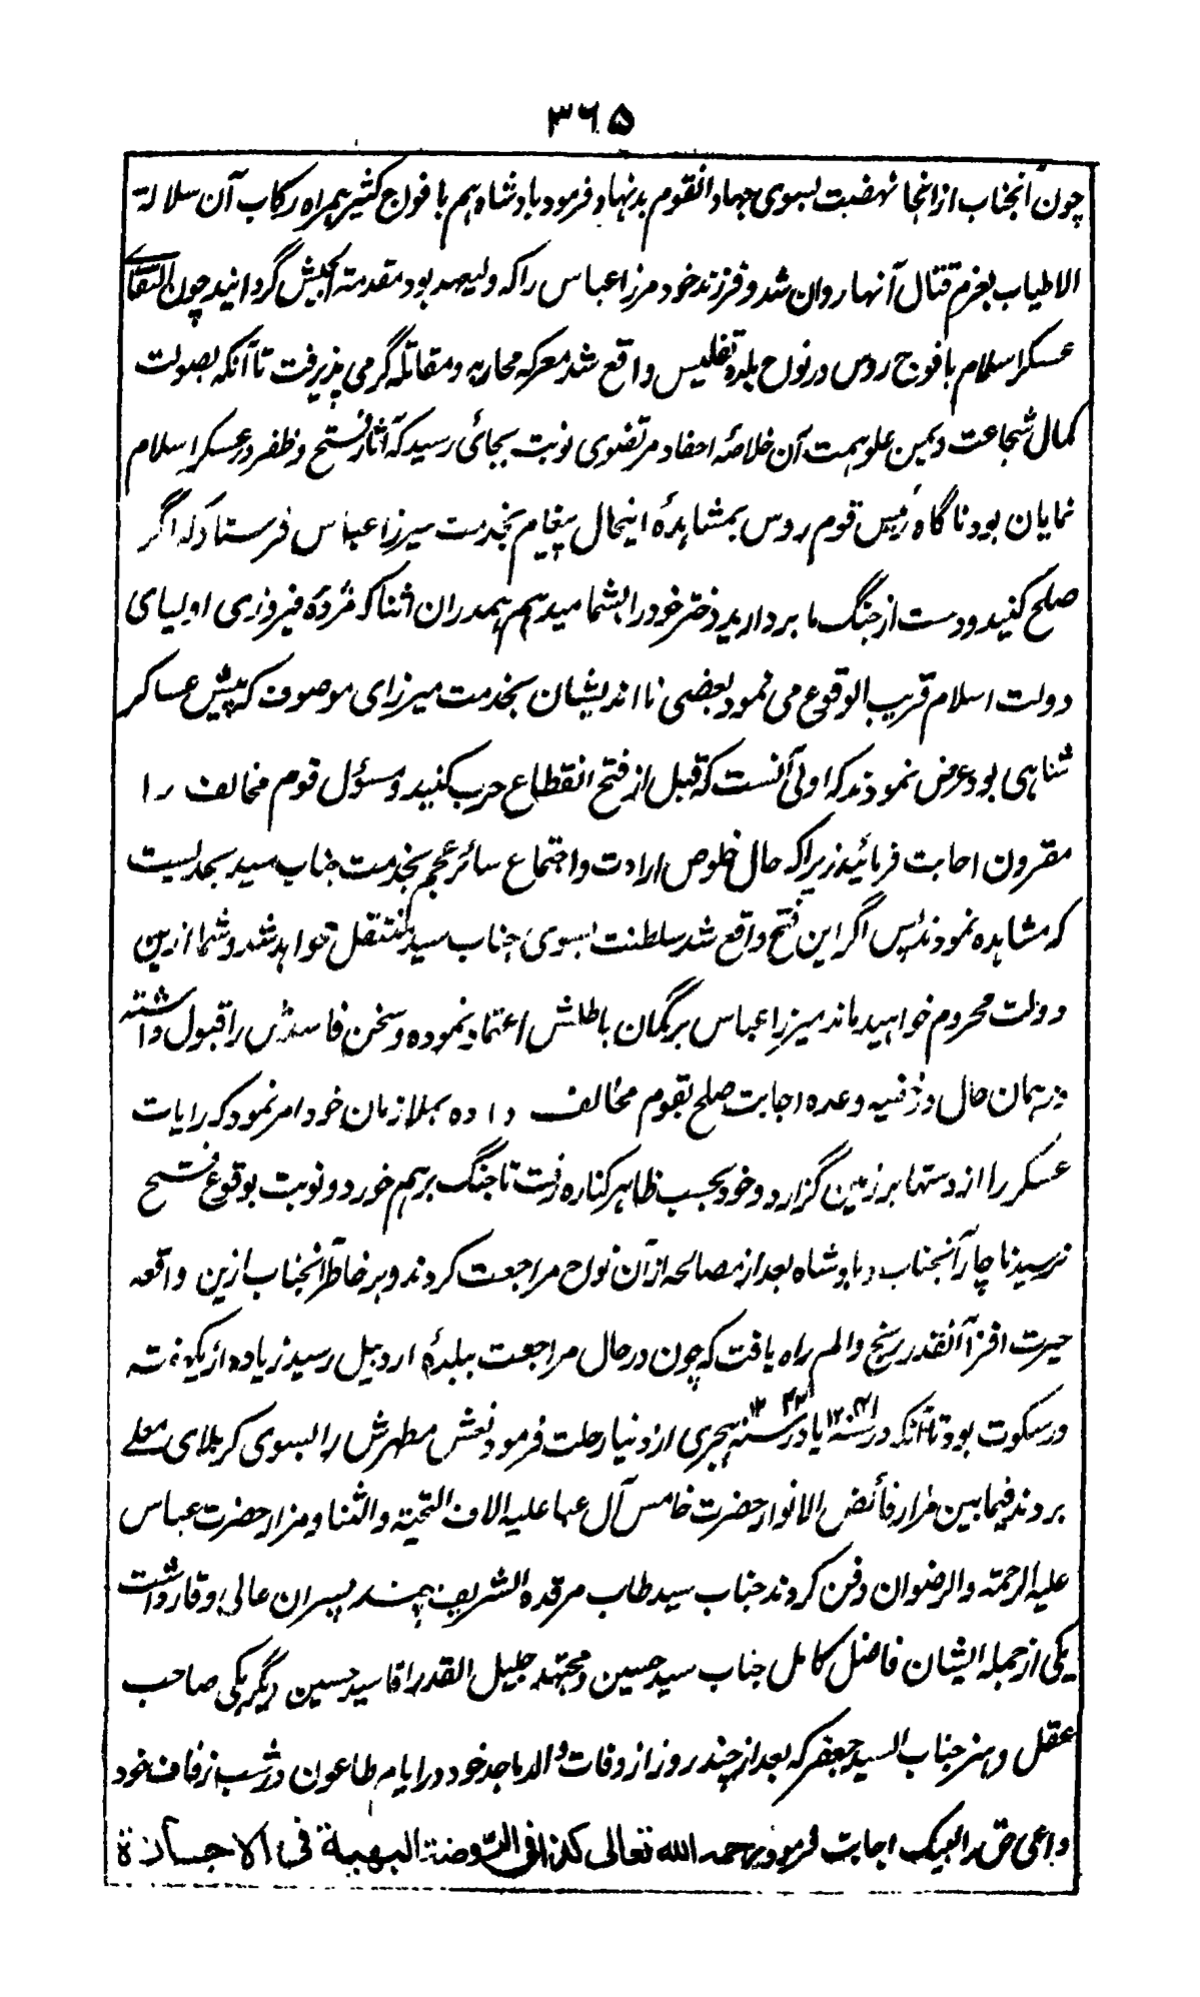 ۳۶۵
چون آنجناب ازانجا نهضت بسوی جهاد انقوم بدنهاد فرمود بادشاه هم با فواج کثیر همراه رکاب آن سلالة
الاطیاب بعزم قتال آنها روان شد و فرزند خود مرزا عباس را که ولیعهد بود مقدمة الجیش گردانید چون التقای
عسکر اسلام با فوج روس در نواح بلده تفلیس واقع شد معرکه محاربه و مقاتله گرمی پذیرفت تا آنکه بصولت
کمال شجاعت و یمن علو همت آن خلاصه احفاد مرتضوی نوبت بجائی رسید که آثار فتح و ظفر در عسکر اسلام
نمایان بود ناگاه رئیس قوم روس بمشاهدهٔ اینحال پیغام بخدمت میرزا عباس فرستاد که اگر
صلح کنید و دست از جنگ ما بردارید دختر خود را بشما میدهم همدران اثنا که مژدهٔ فیروزی اولیای
دولت اسلام قریب الوقوع می نمود بعضی نا اندیشان بخدمت میرزای موصوف که پیش عساکر
شاهی بود عرض نمودند که اولی آنست که قبل از فتح انقطاع حرب کنید و مسؤل قوم مخالف را
مقرون اجابت فرمائید زیرا که حال خلوص ارادت و اجتماع سائر عجم بخدمت جناب سید بحدیست
که مشاهده نمودند پس اگر این فتح واقع شد سلطنت بسوی جناب سید منتقل خواهد شد و شما ازین
دولت محروم خواهید ماند میرزا عباس برگمان باطلش اعتماد نموده و سخن فاسدش را قبول داشته
در همان حال در خفیه وعده اجابت صلح بقوم مخالف داده بملازمان خود امر نمود که رایات
عسکر را از دستها بر زمین گزارد و خود بحسب ظاهر کناره رفت تا جنگ برهم خورد و نوبت بوقوع فتح
نرسید ناچار آنجناب و بادشاه بعد از مصالحه ازآن نواح مراجعت کردند و بر خاطر آنجناب ازین واقعه
حیرت افزا آنقدر رنج والم راه یافت که چون در حال مراجعت ببلدهٔ اردبیل رسید زیاده از
در سکوت بود تا آنکه در سنه یا در سنه هجری از دنیا رحلت فرمود نعش مطهرش را بسوی کربلای معلے
بردند فیما بین مزار فائض الانوار حضرت خامس آل عبا علیه الاف التحیة والثنا و مزار حضرت عباس
علیه الرحمة والرضوان دفن کردند جناب سید طاب مرقده الشریف چند پسران عالی وقار داشت
یکی از جمله ایشان فاضل کامل جناب سید حسین و مجتهد جلیل القدر اقا سید حسین دیگر یکی صاحب
عقل و هنر جناب السید جعفر که بعد از چند روز از وفات والد ماجد خود در ایام طاعون در شب زفاف خود
داعی حق را لبیک اجابت فرمود رحمه الله تعالی کذا فی الروضة البهیة فی الاجازة